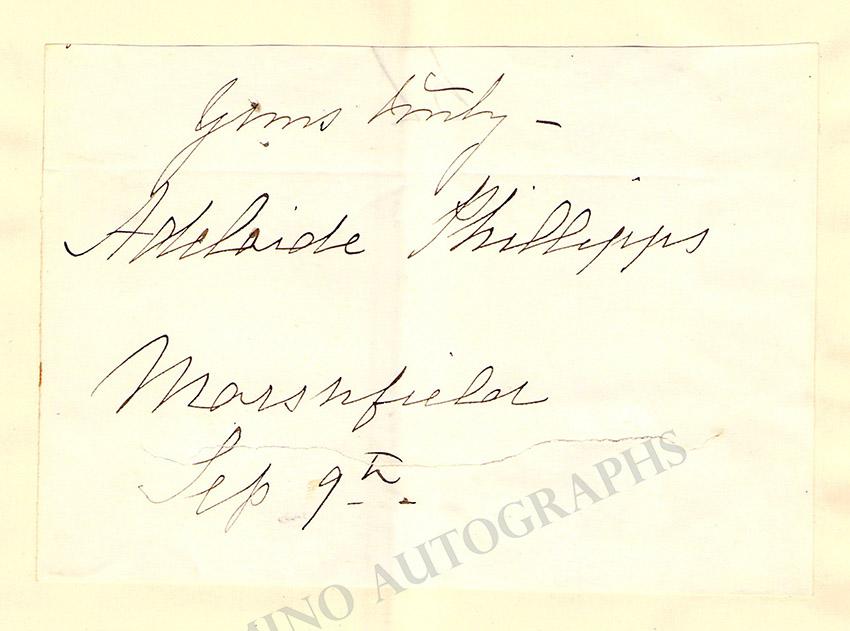 Yours truly -
Adelaide Phillipps
Marshfield
Sep 9th.
MINO AUTOGRAPHS